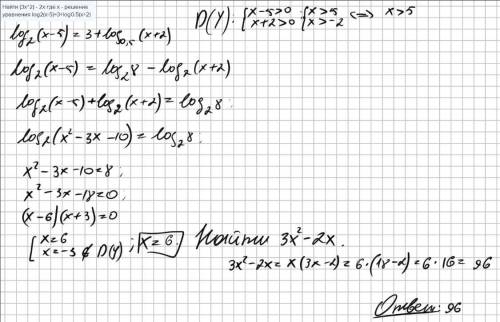 Найти (3x^2) - 2x где x - решение
уравнения log2(x-5)=3+log0.5(x+2)
log₂(x-5) = 3 + log₀,₅(x+2)
D(y): {x-5>0 x+2>0 {x>5 x>-2 <=> x>5
log₂(x-5) = log₂8 - log₂(x+2)
log₂(x-5) + log₂(x+2) = log₂8;
log₂(x²-3x-10) = log₂8;
x²-3x-10=8;
x²-3x-18=0;
(x-6)(x+3)=0
[x=6 x=-3 ∉ D(y); x=6. Найти 3x²-2x.
3x²-2x = x(3x-2) = 6·(18-2) = 6·16 = 96
Ответ: 96